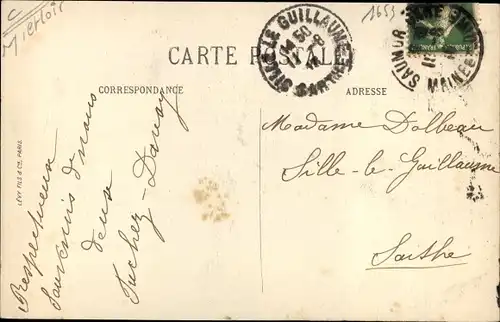 C
1653
CARTE POSTALE
SILLE LE GUILLAUME
SARTHE
SAUMUR
MAINE
CORRESPONDANCE
ADRESSE
LÉVY FILS & Cie, PARIS
Respectueux
souvenirs de nous
deux
Madame Dalbeau
Sille-le-Guillaume
Sarthe